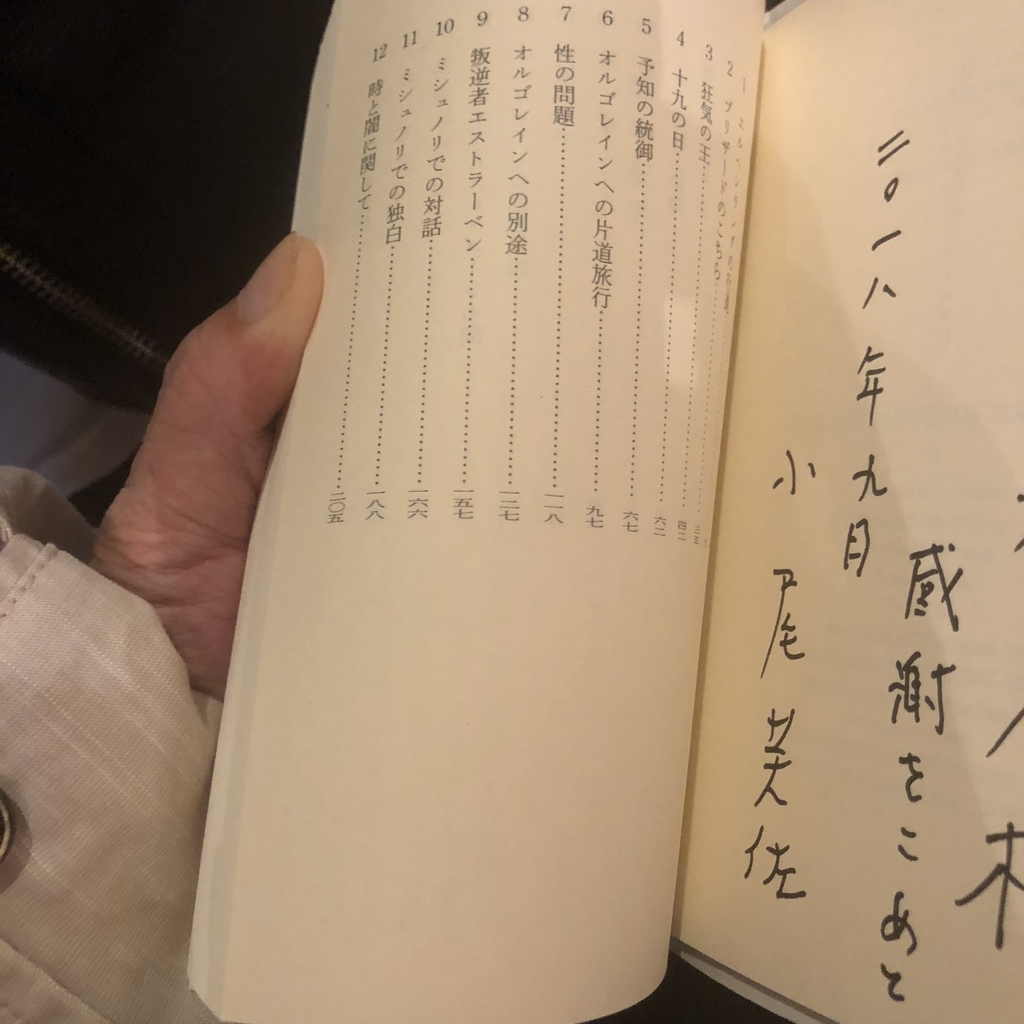 様
感謝をこめて
二〇一八年九月
小尾芙佐
1 エルヘンラングの
2 ブリザードのこちら……三五
3 狂気の王……四二
4 十九の日……六二
5 予知の統御……六七
6 オルゴレインへの片道旅行……九七
7 性の問題……一一八
8 オルゴレインへの別途……一三七
9 叛逆者エストラーベン……一五七
10 ミシュノリでの対話……一六六
11 ミシュノリでの独白……一八八
12 時と闇に関して……二〇五